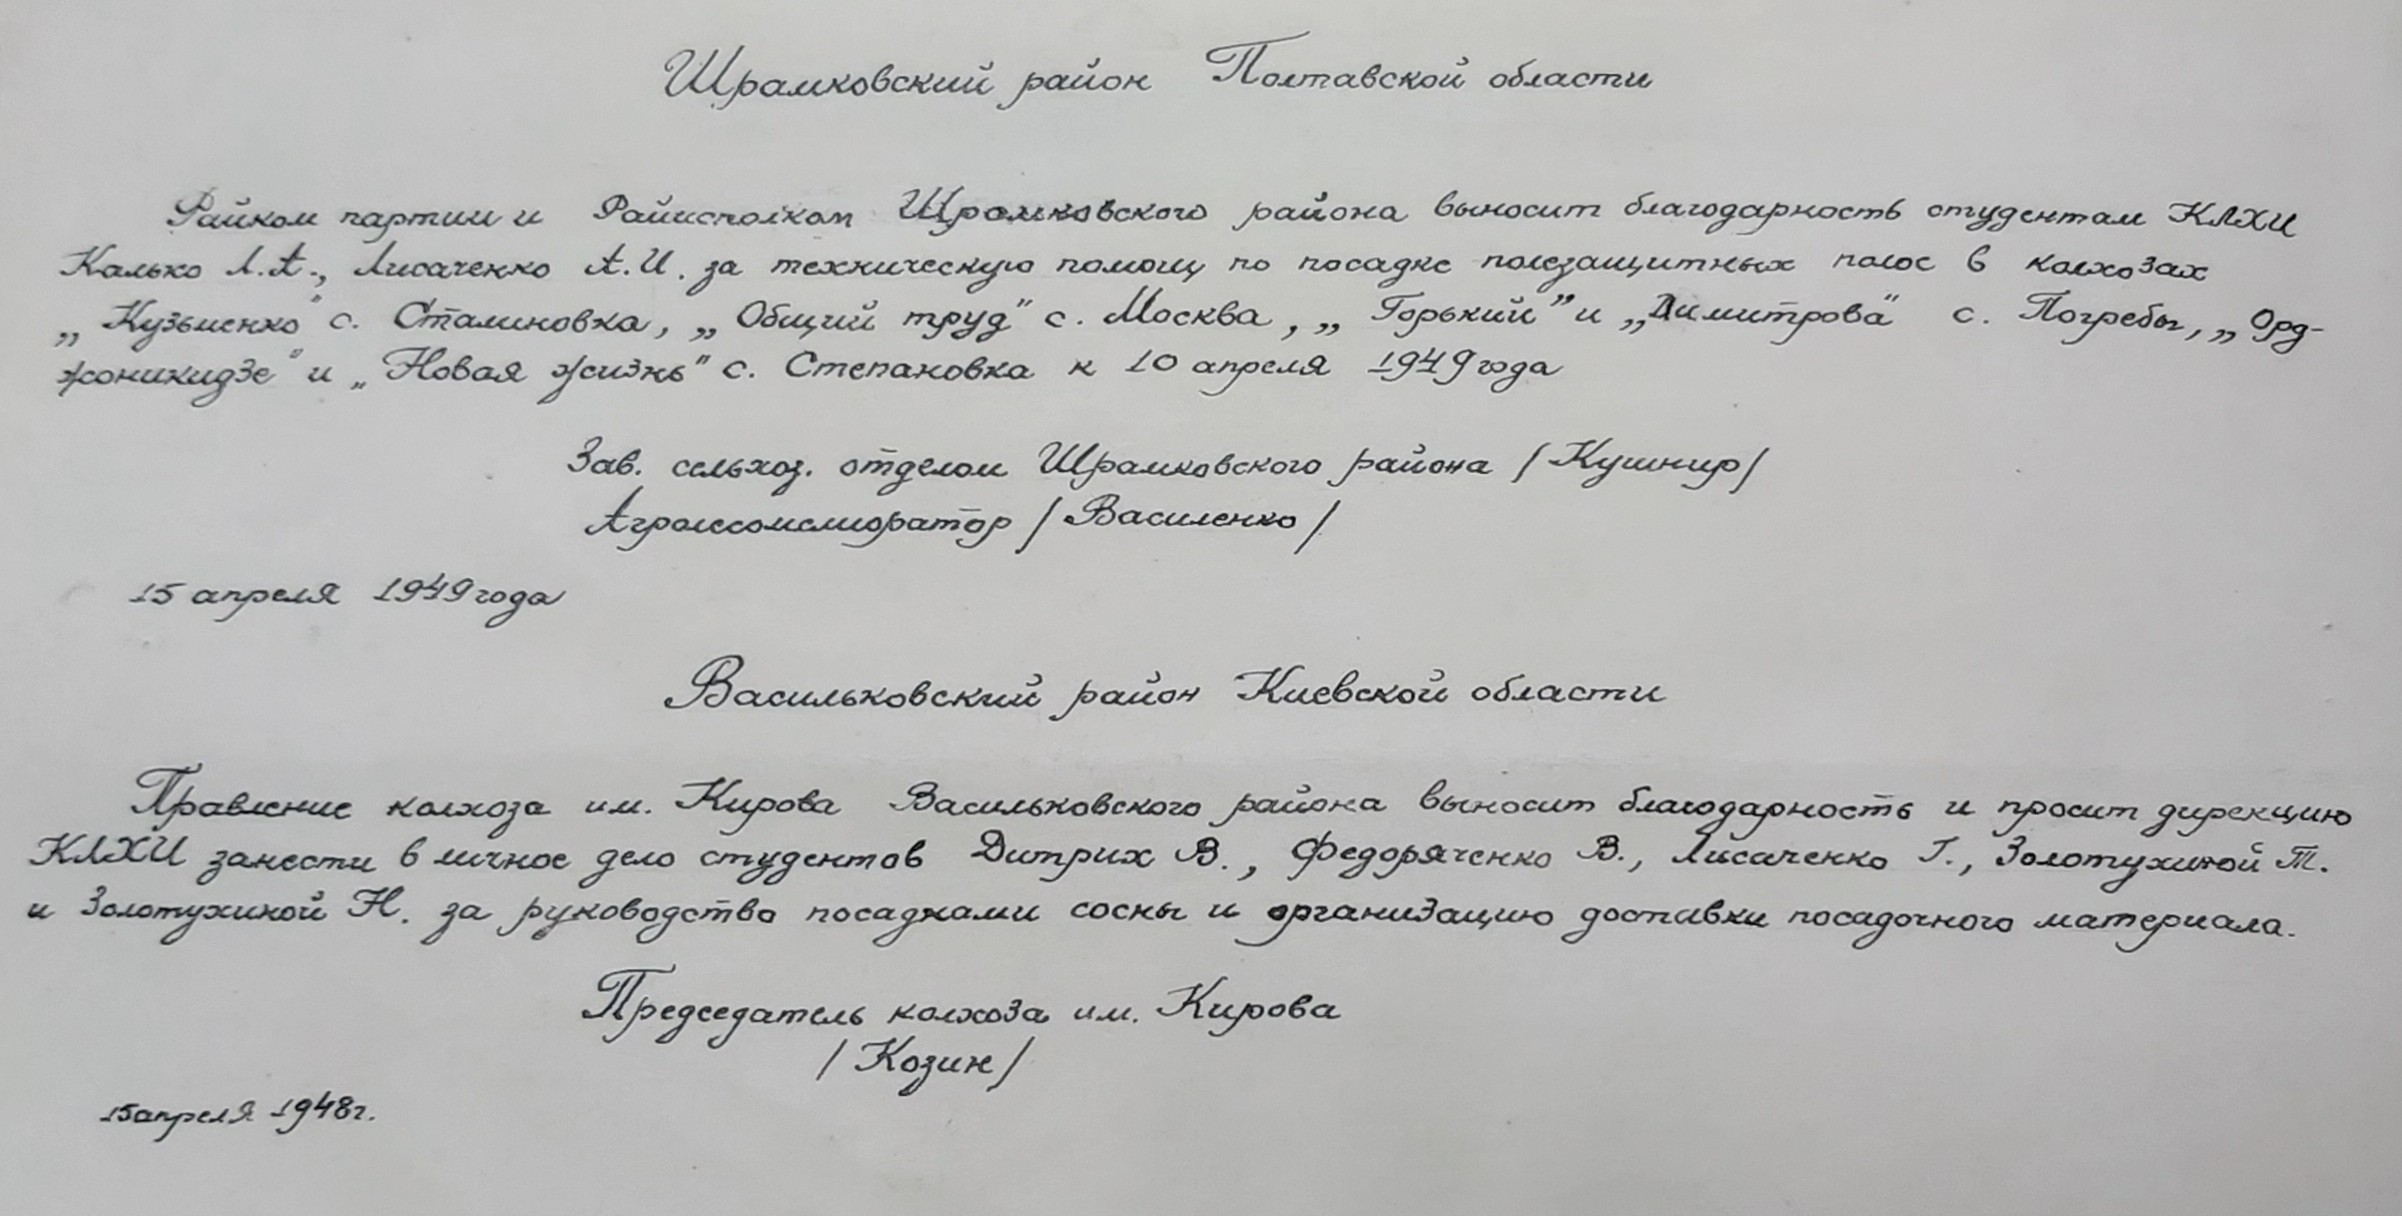 Шрамковский район Полтавской области
Райком партии и Райисполком Шрамковского района выносит благодарность студентам КЛХИ
Калько Л.А., Лисаченко А.И. за техническую помощь по посадке полезащитных полос в колхозах
„Кузьменко" с. Сталиновка, „Общий труд" с. Москва, „Горький" и „Димитрова" с. Погребы, „Орд-
жоникидзе" и „Новая жизнь" с. Степановка к 10 апреля 1949 года
Зав. сельхоз. отделом Шрамковского района /Кушнир/
Агролесомелиоратор /Василенко/
15 апреля 1949 года
Васильковский район Киевской области
Правление колхоза им. Кирова Васильковского района выносит благодарность и просит дирекцию
КЛХИ занести в личное дело студентов Дитрих В., Федоряченко В., Лисаченко Г., Золотухиной Т.
и Золотухиной Н. за руководство посадками сосны и организацию доставки посадочного материала.
Председатель колхоза им. Кирова
/Козин/
15 апреля 1948 г.